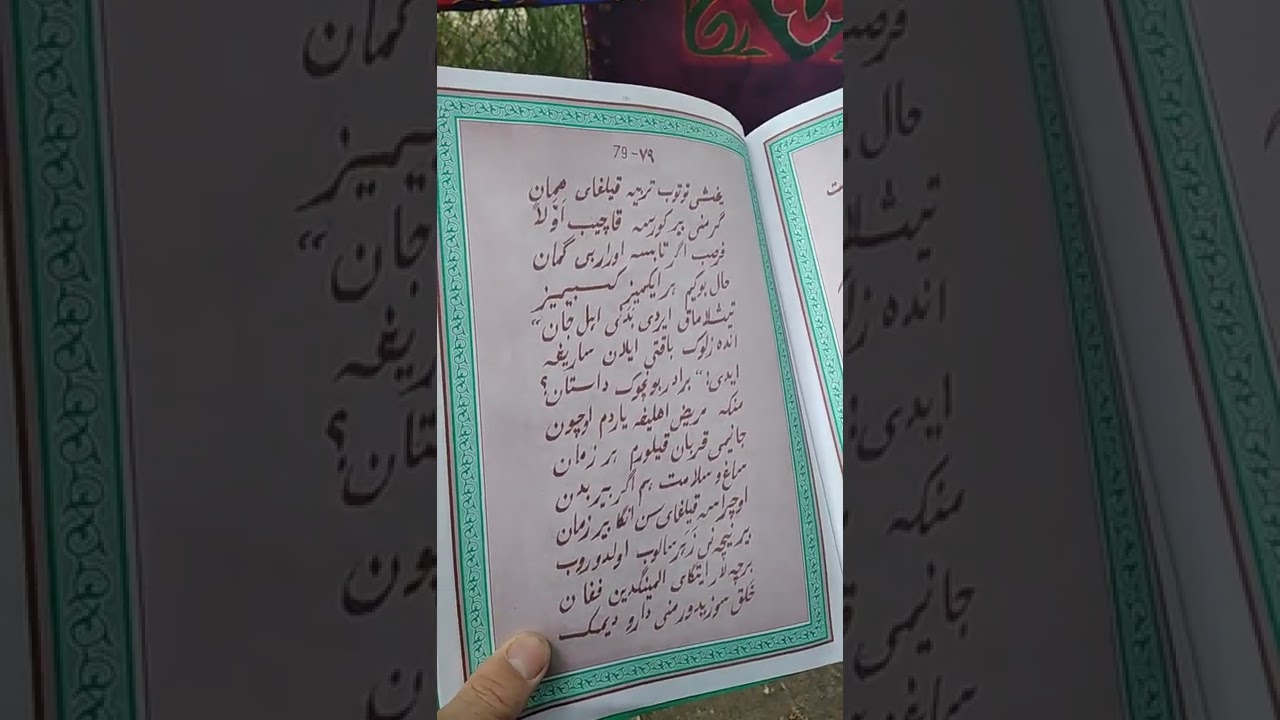 79-۷۹
یخشی توتوب تربیه قیلغای همان
گرمنی بیر کورسه قاچیب اولا
فرصت اگر تاپسه اورارس گمان
حال بوکیم هر ایکمیز کسبیمیز
تیشلاماق ایردی بدنی اهل جان"
انده زلوک باقتی ایلان ساریغه
ایدی: "برادر بو نچوک داستان؟
منکه مریض اهلیغه یاردم اوچون
جانیمی قربان قیلورم هر زمان
ساغ و سلامت هم اگر بیر بدن
اوچراسه قیلغای سن انگا بیر زمان
بیر نیچه نی زهر سالوب اولدوروب
برچه لار ایتگای المینگدین فغان
خلق سوزیدور منی دارو دیمک